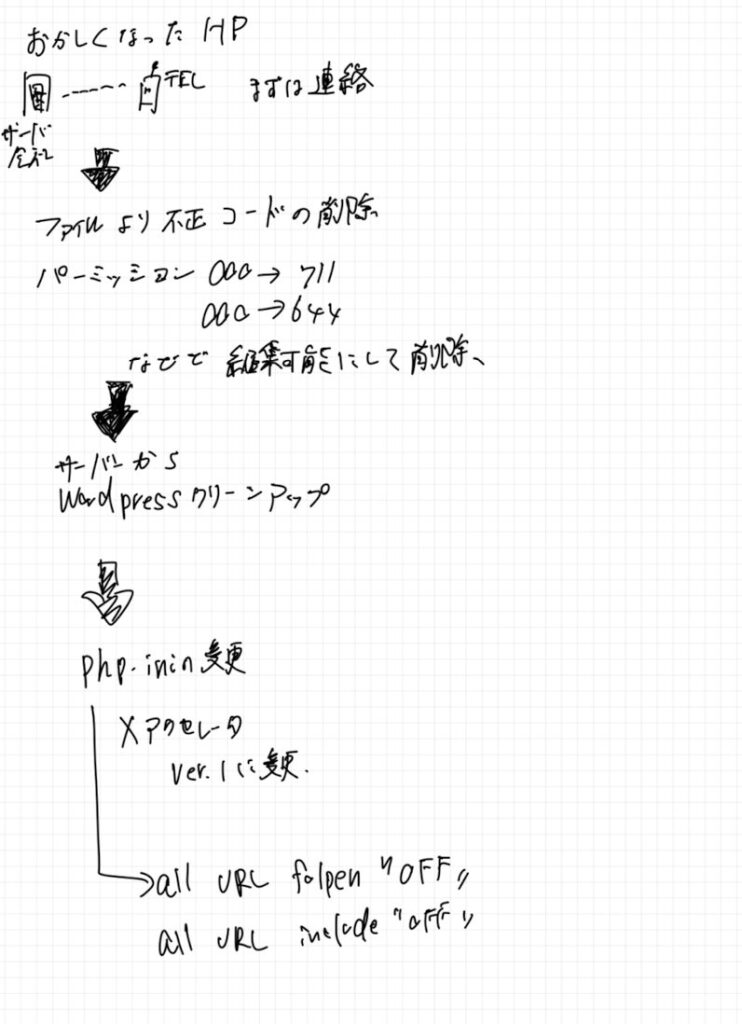 おかしくなった HP
TEL まずは連絡
サーバ
会社
ファイルより不正コードの削除、
パーミッション 000→711
000→644
などで編集可能にして削除、
サーバーから
Wordpressクリーンアップ
php.inin変更
Xアクセレータ
ver.1に変更.
all URL folpen "OFF"
all URL include "OFF"